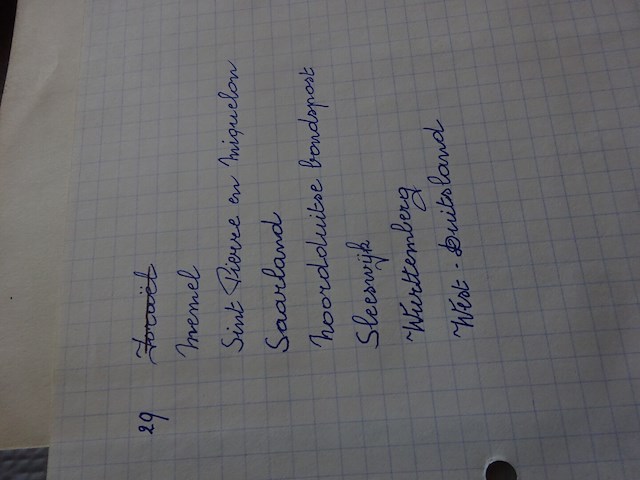 29 Israël
Memel
Sint Pierre en Miquelon
Saarland
Noordduitse bondspost
Sleeswijk
Württemberg
West-Duitsland